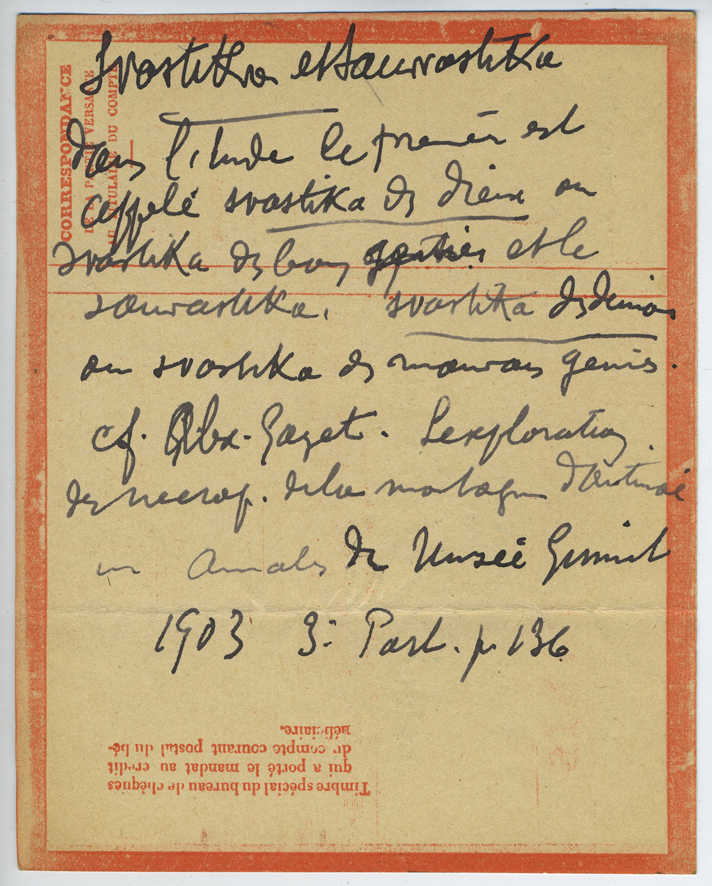 Svastika et Sauwastika
Dans l'étude le premier est
appelé svastika des dieux ou
svastika des bons génies et le
sauwastika, svastika des démons
ou svastika des mauvais génies.
cf. Alex. Gayet. L'exploration
des necrop. de la montagne d'Antinoé
in Annales du Musée Guimet
1903 3e Part. p. 136
CORRESPONDANCE
DE LA PARTIE VERSANTE
AU TITULAIRE DU COMPTE
Timbre spécial du bureau de chèques
qui a porté le mandat au crédit
du compte courant postal du bé-
néficiaire.